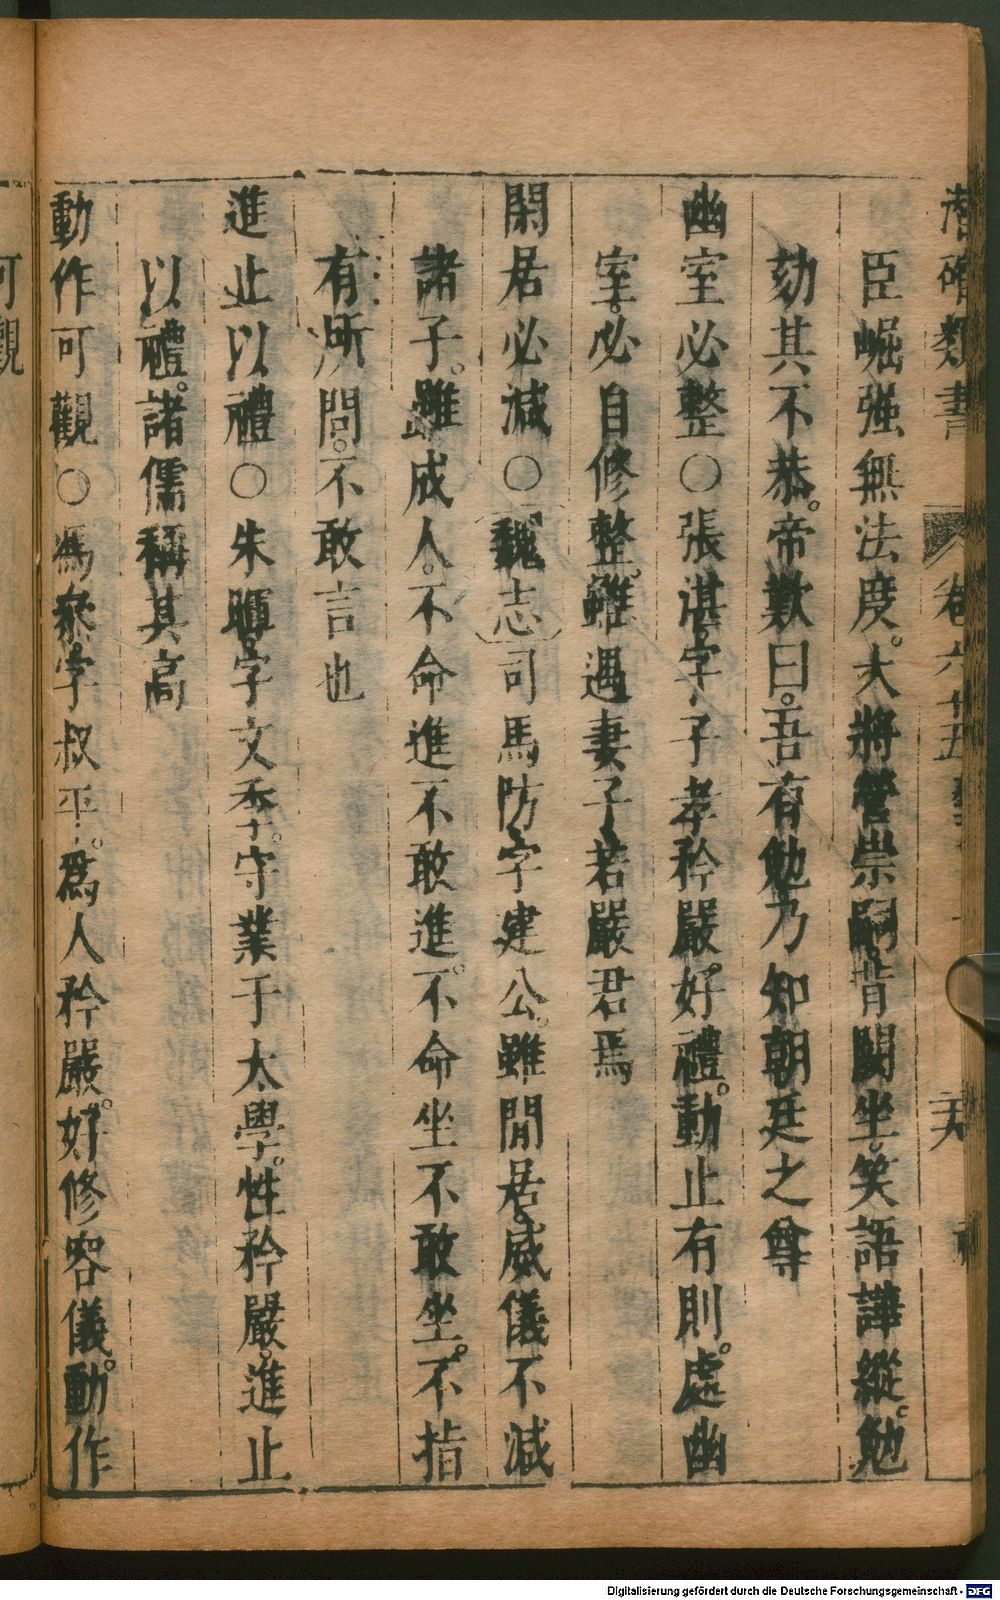 潛確類書 卷六十五
臣崛强無法度。大將管崇嗣背闕坐。笑語譁縱。勉
劾其不恭。帝歎曰。吾有勉乃知朝廷之尊
幽室必整○張湛字子孝矜嚴。好禮。動止有則。處幽
室。必自修整。雖遇妻子若嚴君焉
閑居必減○魏志司馬防字建公。雖閒居。威儀不減
諸子。雖成人。不命進不敢進。不命坐不敢坐。不指
有所問。不敢言也
進止以禮○朱暉字文季。守業于太學。性矜嚴。進止
以禮。諸儒稱其高
動作可觀○馮豹字叔平。爲人矜嚴。好修容儀。動作
可觀
Digitalisierung gefördert durch die Deutsche Forschungsgemeinschaft - DFG